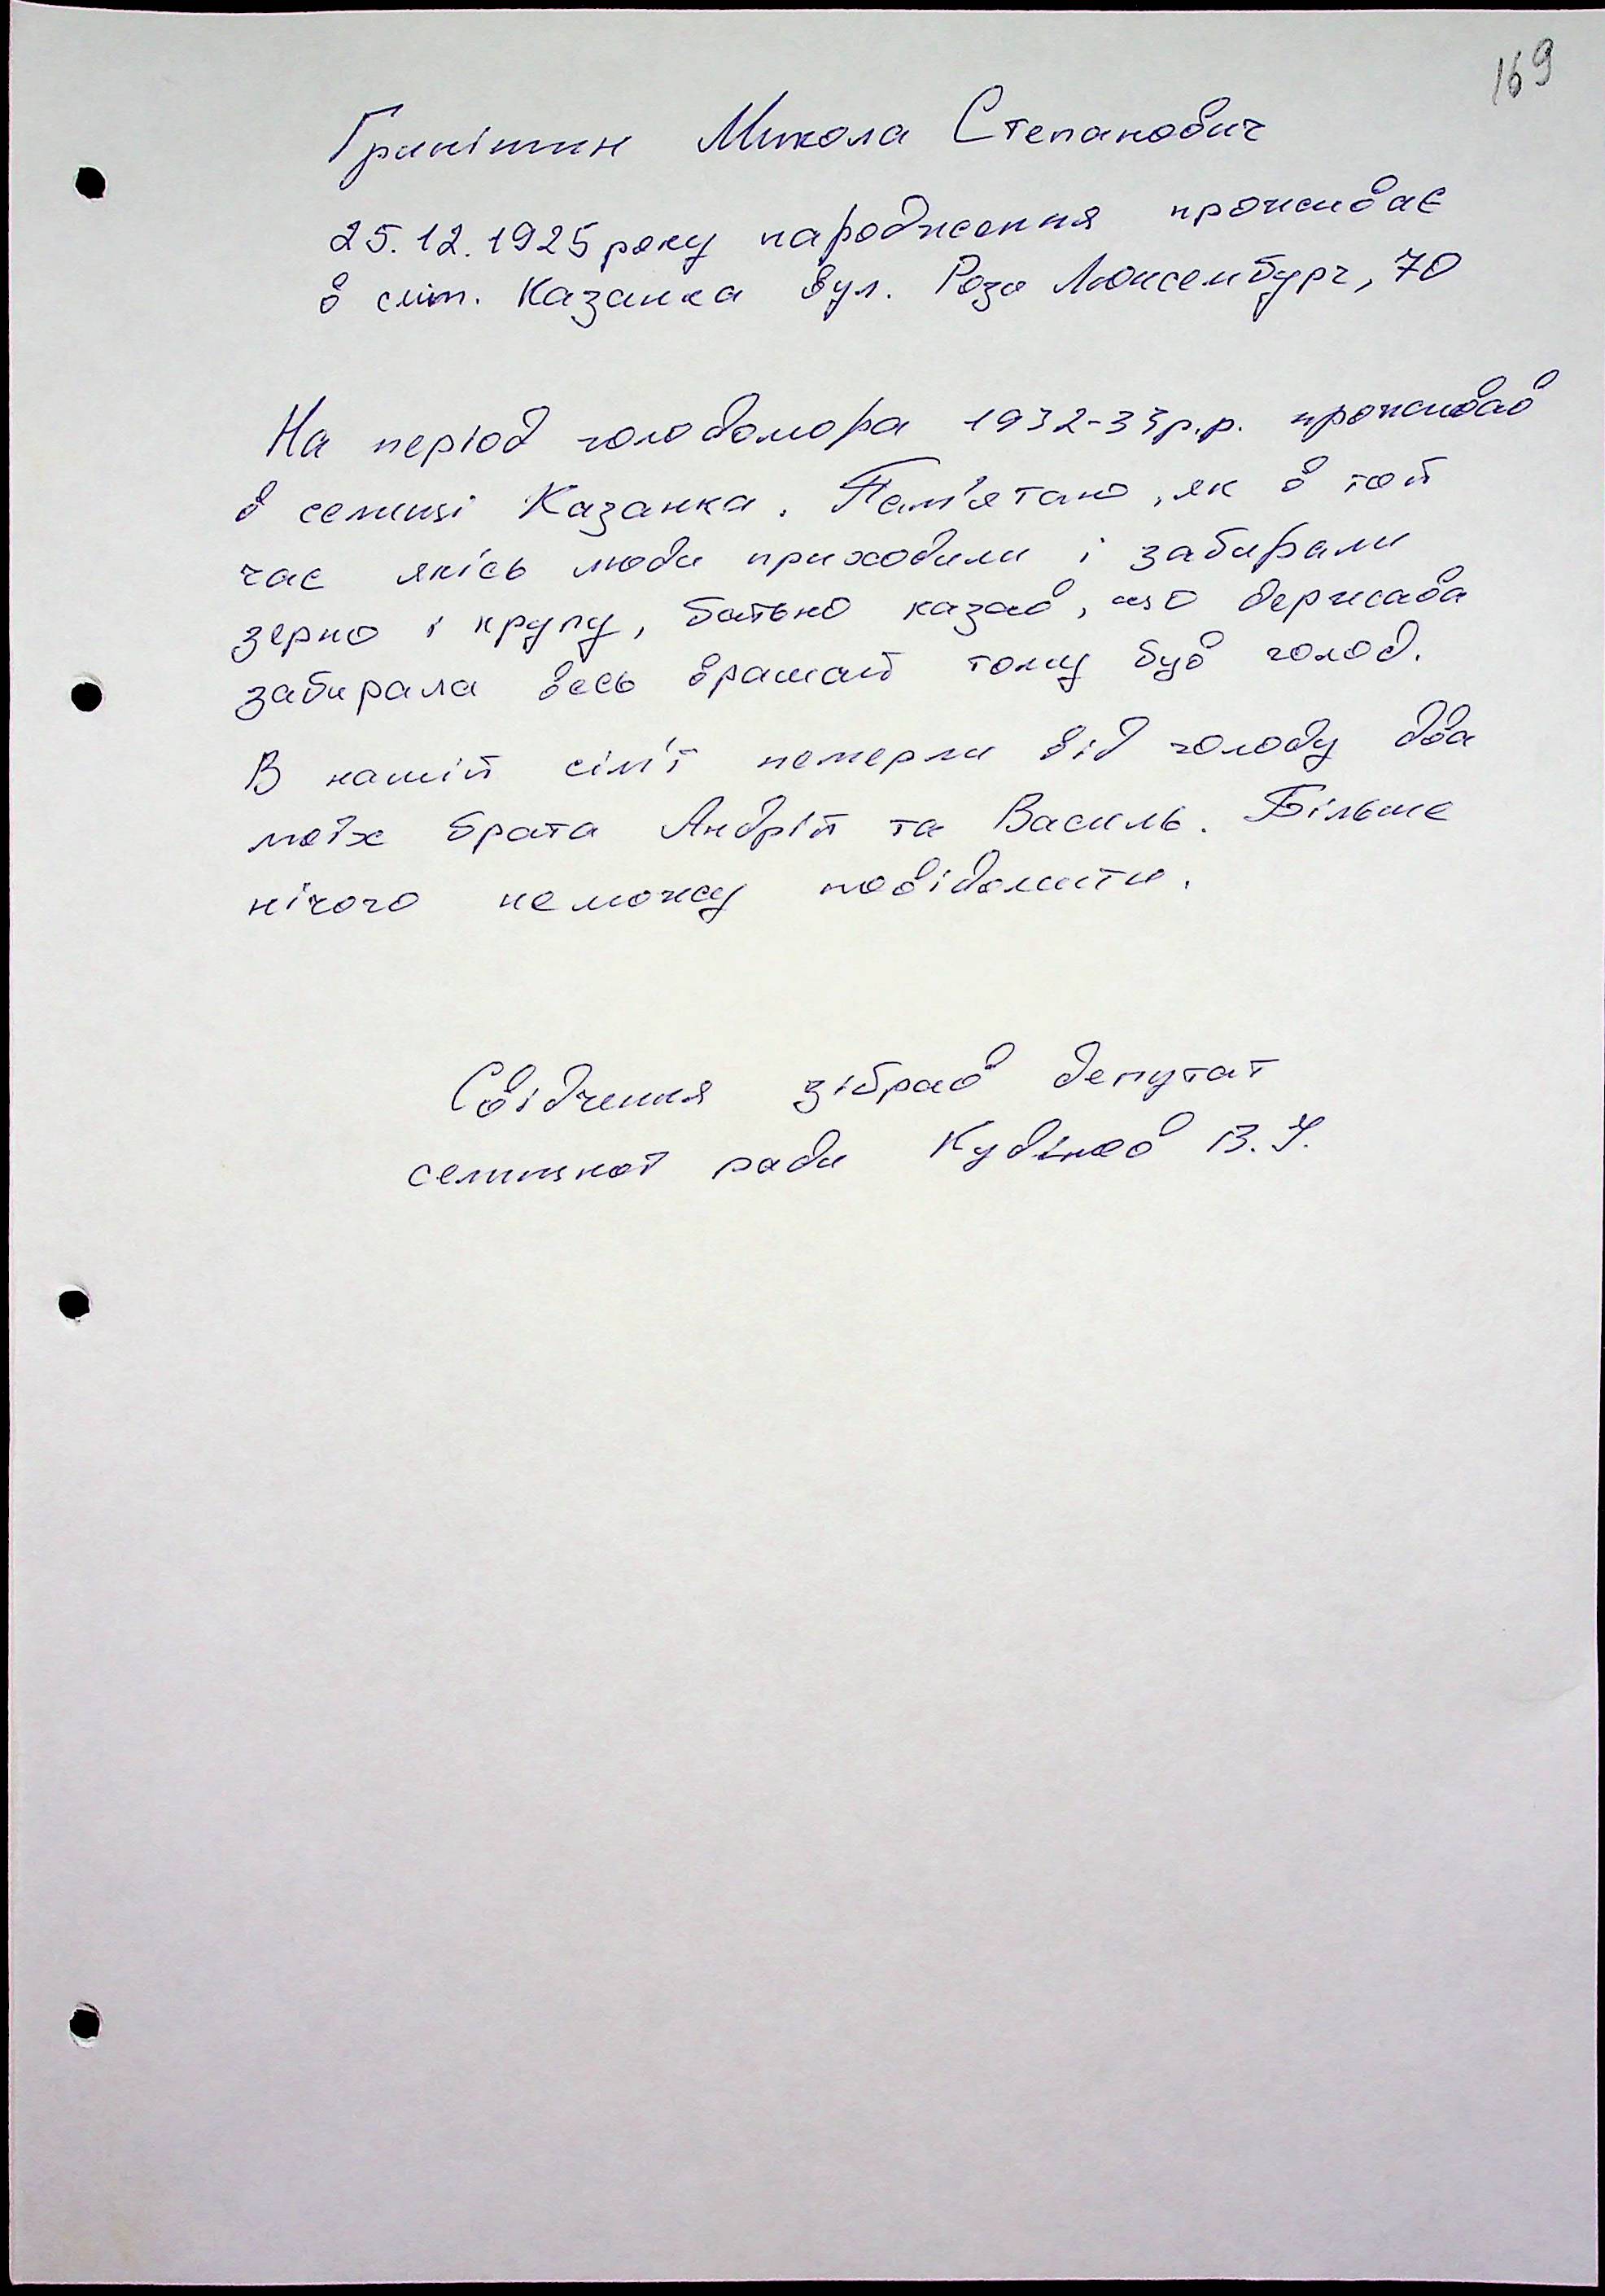 169
Гринішин Микола Степанович
25.12.1925 року народження проживає
в смт. Казанка вул. Рози Люксембург, 70
На період голодомора 1932-33 р.р. проживав
в селищі Казанка. Пам'ятаю, як в той
час якісь люди приходили і забирали
зерно і крупу, батько казав, що держава
забирала весь врашай тому був голод.
В нашій сім'ї померли від голоду два
моїх брата Андрій та Василь. Більше
нічого не можу повідомити.
Свідчення зібрав депутат
селищної ради В.У.